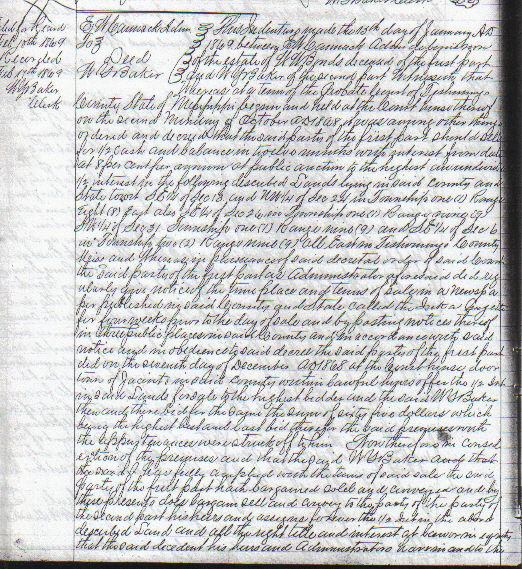 E W Carmack Admr
To } Deed
W G Baker
Filed for Record
Feby 10th 1869
Recorded
Feby 17th 1869
W G Baker
Clerk
This Indenture made this 13th day of January AD
1869 between E W Carmack Administrator
of the estate of decased of the first part
and W G Baker of the second part Witnesseth, that
Whereas at a term of the Probate Court of Tishomingo
County State of Mississippi begun and held at the Court house thereof
on the second Monday of October AD 1868 it was among other things
ordered and decreed that the said party of the first part should sell
for 1/2 Cash and balance in twelve months with interest from date
at 8 per cent per annum at public auction to the highest
1/2 interest in the following described Lands lying in said County and
State to wit SE 1/4 of Sec 13 and NW 1/4 of Sec 24 in Township one (1) Range
eight (8) East also SE 1/4 of Sec 26 in Township one (1) Range
SW 1/4 of Sec 31 Township one (1) Range nine (9) and SE 1/4 of Sec 6
in Township two (2) Range nine (9) All East in Tishomingo County
Miss and Whereas in pursuance of said decretal order of said Court
the said party of the first part as Administrator aforesaid did
give notice of the time place and terms of Sale in a newspa
per published in said County and State called the Iuka Gazette
for four weeks prior to the day of sale and by posting notices thereof
in three public places in said County and in accordance with said
notice and in obedience to said decree the said party of the first part
did on the seventh day of December AD 1868 at the Court house door
town of Jacinto in said County within lawful hours offer the 1/2
in said Lands for sale to the highest bidder and the said W G Baker
then and there bid for the same the sum of sixty five dollars which
being the highest best and last bid therefor the said premises with
the appurtenances were struck off to him Now therefore in consid
eration of the premises and that the said W G Baker
the said has fully complied with the terms of said sale the said
Party of the first part hath bargained sold and conveyed and by
these presents does bargain sell and convey to the party of
the second part his heirs and assigns forever the 1/2 int in the above
described Land and all the right title and interest at law or in equity
that the said decedent his heirs and Administrators have in and to the